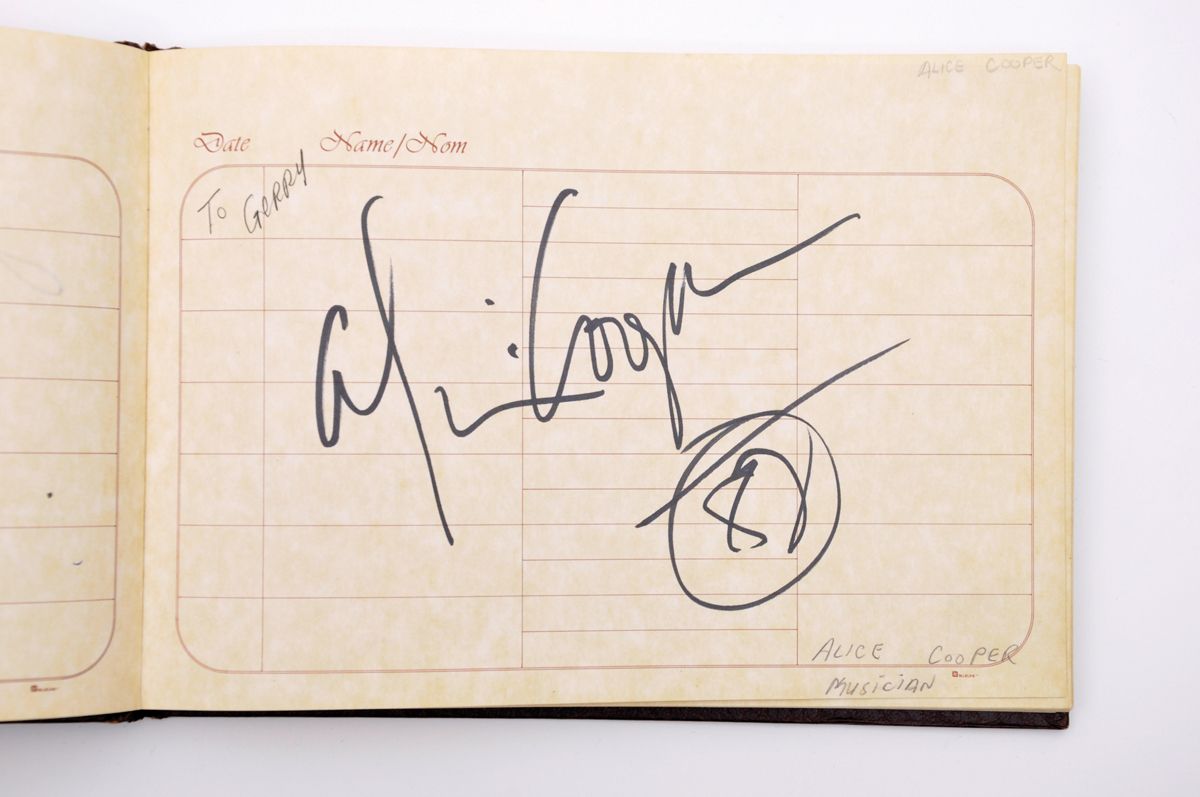 ALICE COOPER
Date Name/Nom
To GERRY
Alice Cooper
87
ALICE COOPER
MUSICIAN